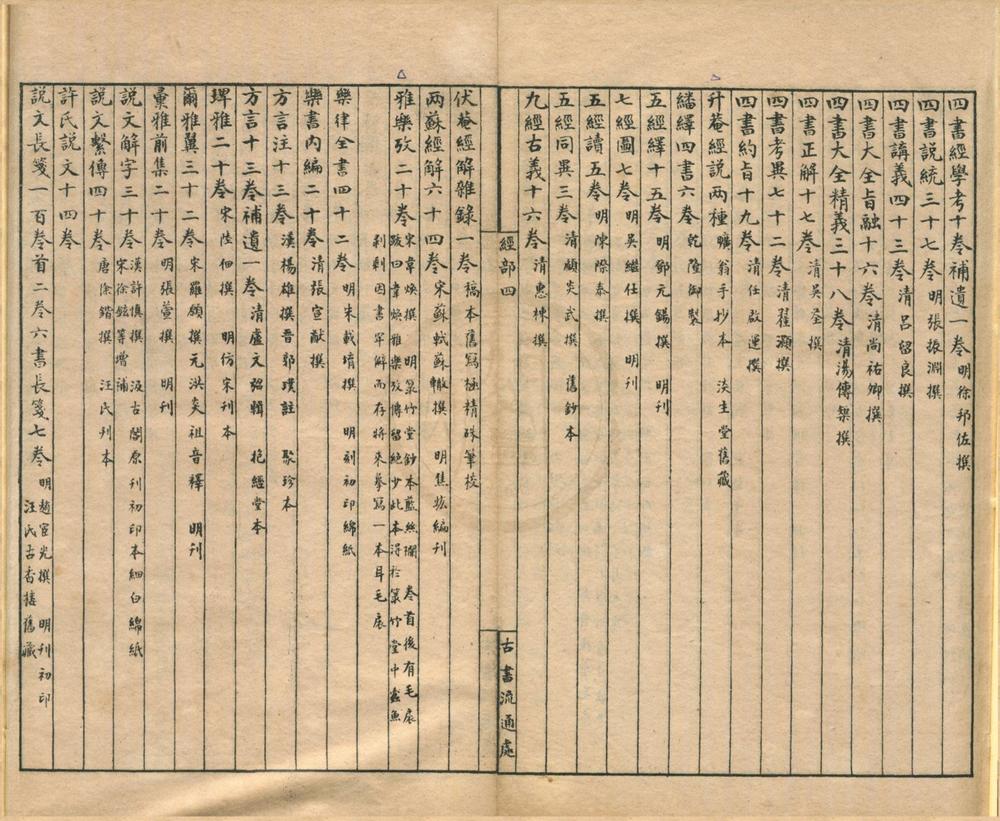 四書經學考十卷補遺一卷 明徐邦佐撰
四書説統三十七卷 明張振淵撰
四書講義四十三卷 清呂留良撰
四書大全旨融十六卷 清尚祐卿撰
四書大全精義三十八卷 清湯傳榘撰
四書正解十七卷 清吳荃撰
四書考異七十二卷 清翟灝撰
四書約旨十九卷 清任啟運撰
升菴經説兩種 曠翁手抄本 淡生堂舊藏
繙繹四書六卷 乾隆御製
五經繹十五卷 明鄧元錫撰 明刊
七經圖七卷 明吳繼仕撰 明刊
五經讀五卷 明陳際泰撰
五經同異三卷 清顧炎武撰 舊鈔本
九經古義十六卷 清惠棟撰
經部四
古書流通處
伏菴經解雜錄一卷 稿本舊寫極精硃筆校
兩蘇經解六十四卷 宋蘇軾蘇轍撰 明焦竑編刊
雅樂攷二十卷 宋韋煥撰 明菉竹堂鈔本藍絲闌 卷首後有毛扆
跋曰韋煥雅樂攷傳留絶少此本得於菉竹堂中蠹魚
剥剩因書罕觧而存將來摹寫一本耳毛扆
樂律全書四十二卷 明朱載堉撰 明刻初印綿紙
樂書内編二十卷 清張宣猷撰
方言注十三卷 漢楊雄撰晋郭璞註 聚珍本
方言十三卷補遺一卷 清盧文弨輯 抱經堂本
埤雅二十卷 宋陸佃撰 明仿宋刊本
爾雅翼三十二卷 宋羅願撰元洪炎祖音釋 明刊
彙雅前集二十卷 明張萱撰 明刊
說文解字三十卷 漢許慎撰 宋徐鉉等增補 汲古閣原刊初印本細白綿紙
說文繫傳四十卷 唐徐鍇撰 汪氏刊本
許氏説文十四卷
説文長箋一百卷首二卷六書長箋七卷 明趙宦光撰 明刊初印
汪氏古香樓舊藏